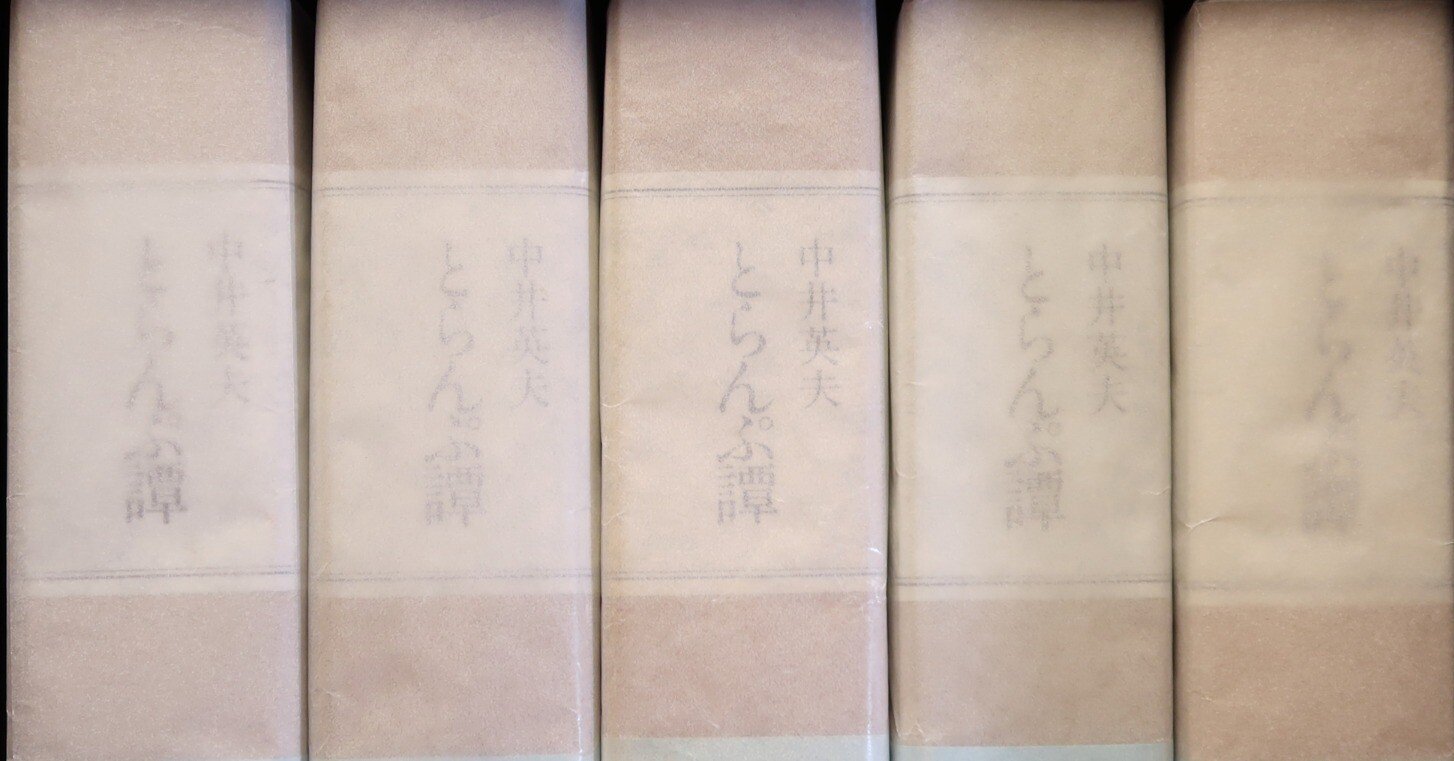 中井英夫
とらんぷ譚
中井英夫
とらんぷ譚
中井英夫
とらんぷ譚
中井英夫
とらんぷ譚
中井英夫
とらんぷ譚